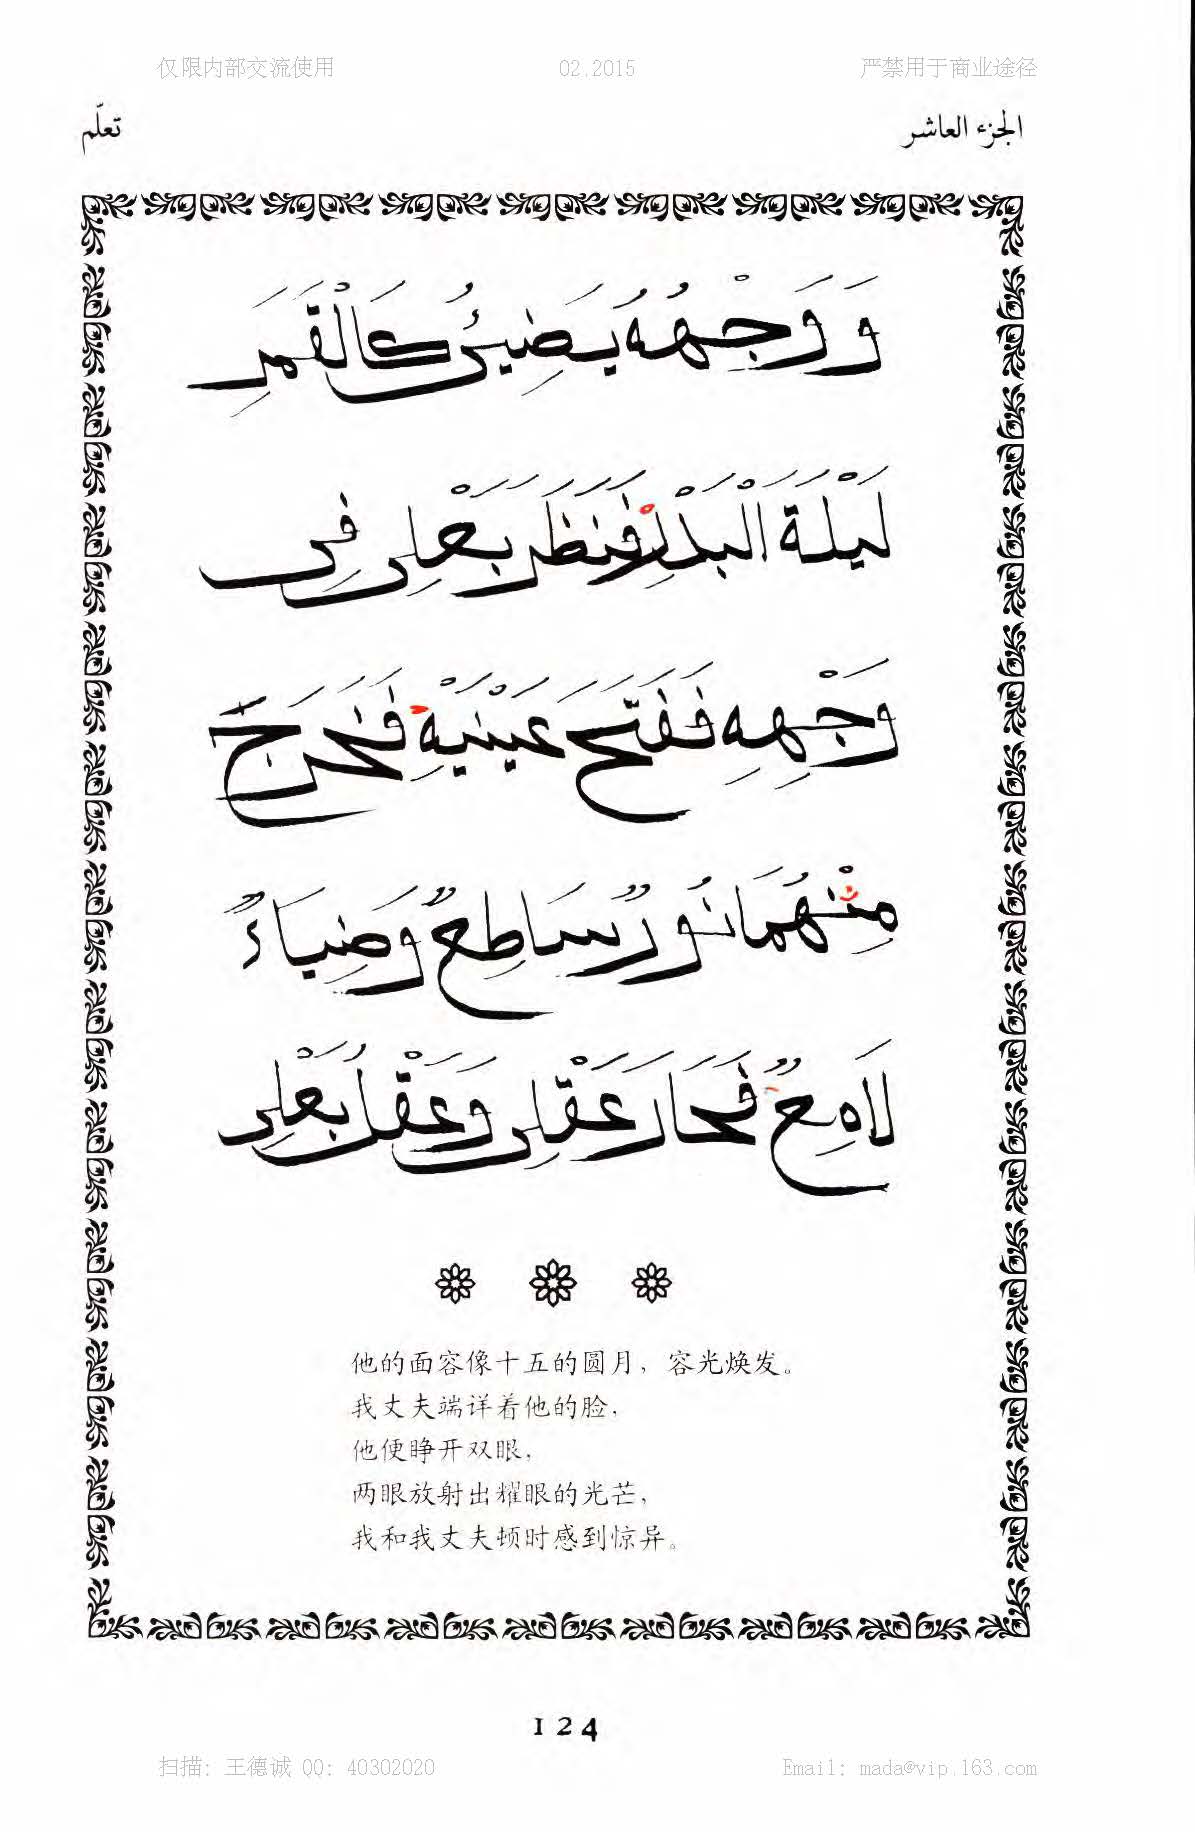 仅限内部交流使用 02.2015 严禁用于商业途径
الجزء العاشر تعلّم
وَ وَجْهُهُ يَضِيئُ كَالْقَمَرِ
لَيْلَةَ الْبَدْرِ فَنَظَرَ بَعْلِي فِي
وَجْهِهِ فَفَتَحَ عَيْنَيْهِ فَخَرَجَ
مِنْهُمَا نُورٌ سَاطِعٌ وَضِيَاءٌ
لَامِعٌ فَحَارَ عَقْلِي وَعَقْلُ بَعْلِي
他的面容像十五的圆月，容光焕发。
我丈夫端详着他的脸，
他便睁开双眼，
两眼放射出耀眼的光芒，
我和我丈夫顿时感到惊异。
124
扫描: 王德诚 QQ: 40302020 Email: mada@vip.163.com